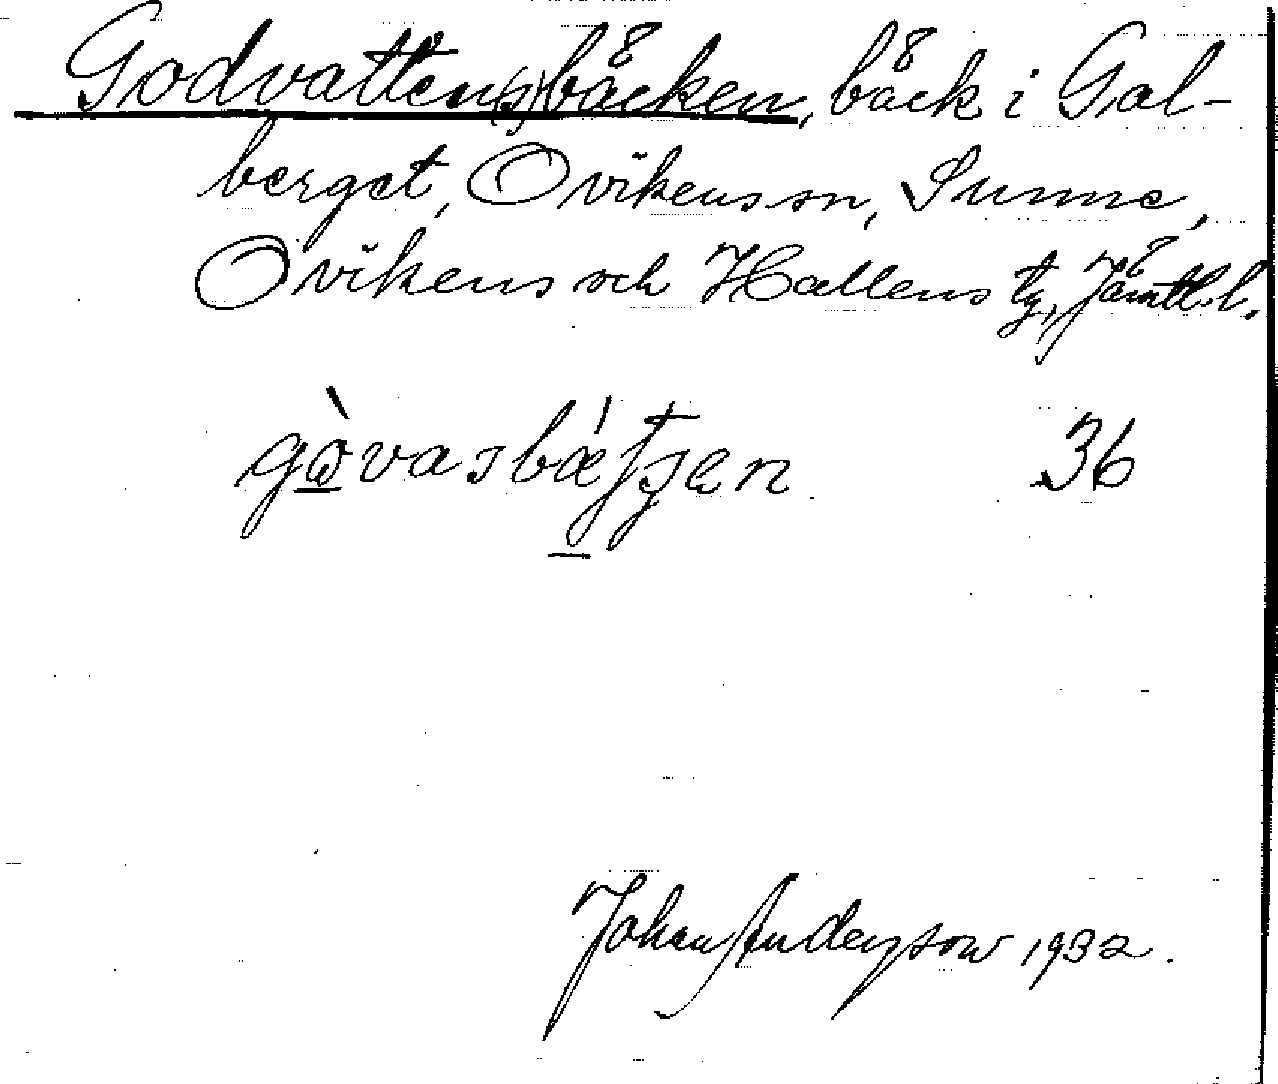 Godvatten(s)bäcken, bäck i Gal-
berget, Ovikens sn, Sunne,
Ovikens och Hallens tg, Jämtl. l.
36
Johan Anderson 1932.